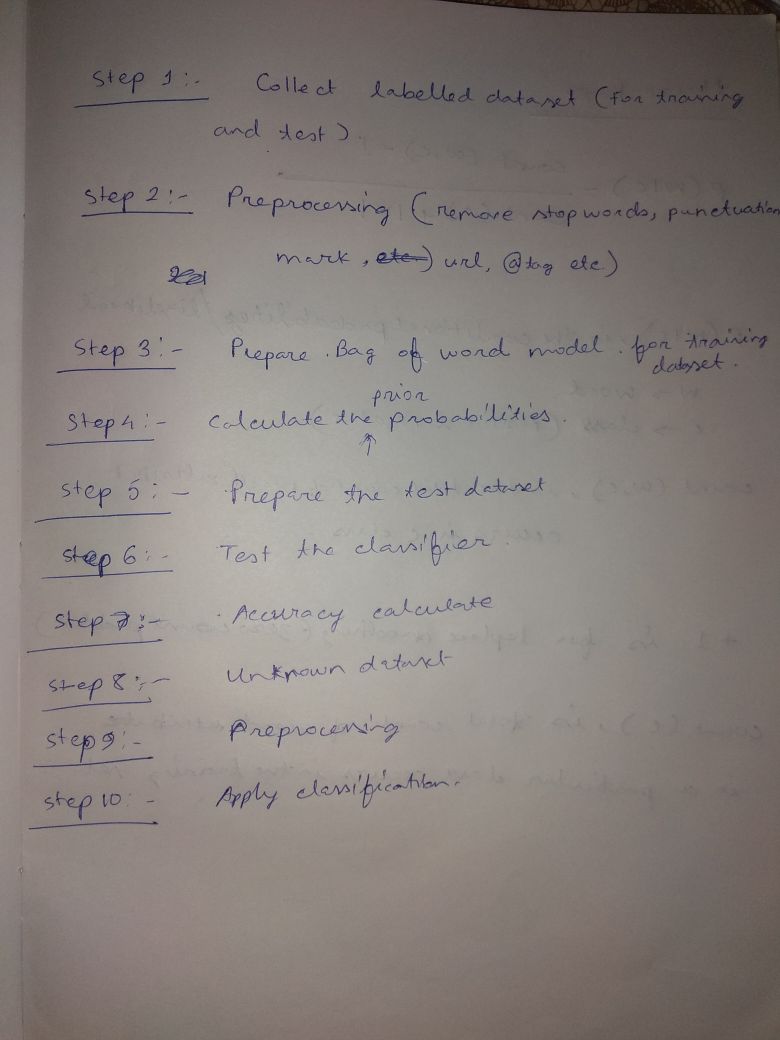 Step 1:- Collect labelled dataset (for training
and test).
Step 2:- Preprocessing (remove stopwords, punctuation
mark, etc.) url, @tag etc)
Step 3:- Prepare Bag of word model for training
dataset.
prior
Step 4:- Calculate the probabilities.
Step 5:- Prepare the test dataset
Step 6:- Test the classifier.
Step 7:- Accuracy calculate
Step 8:- Unknown dataset
Step 9:- Preprocessing
Step 10:- Apply classification.